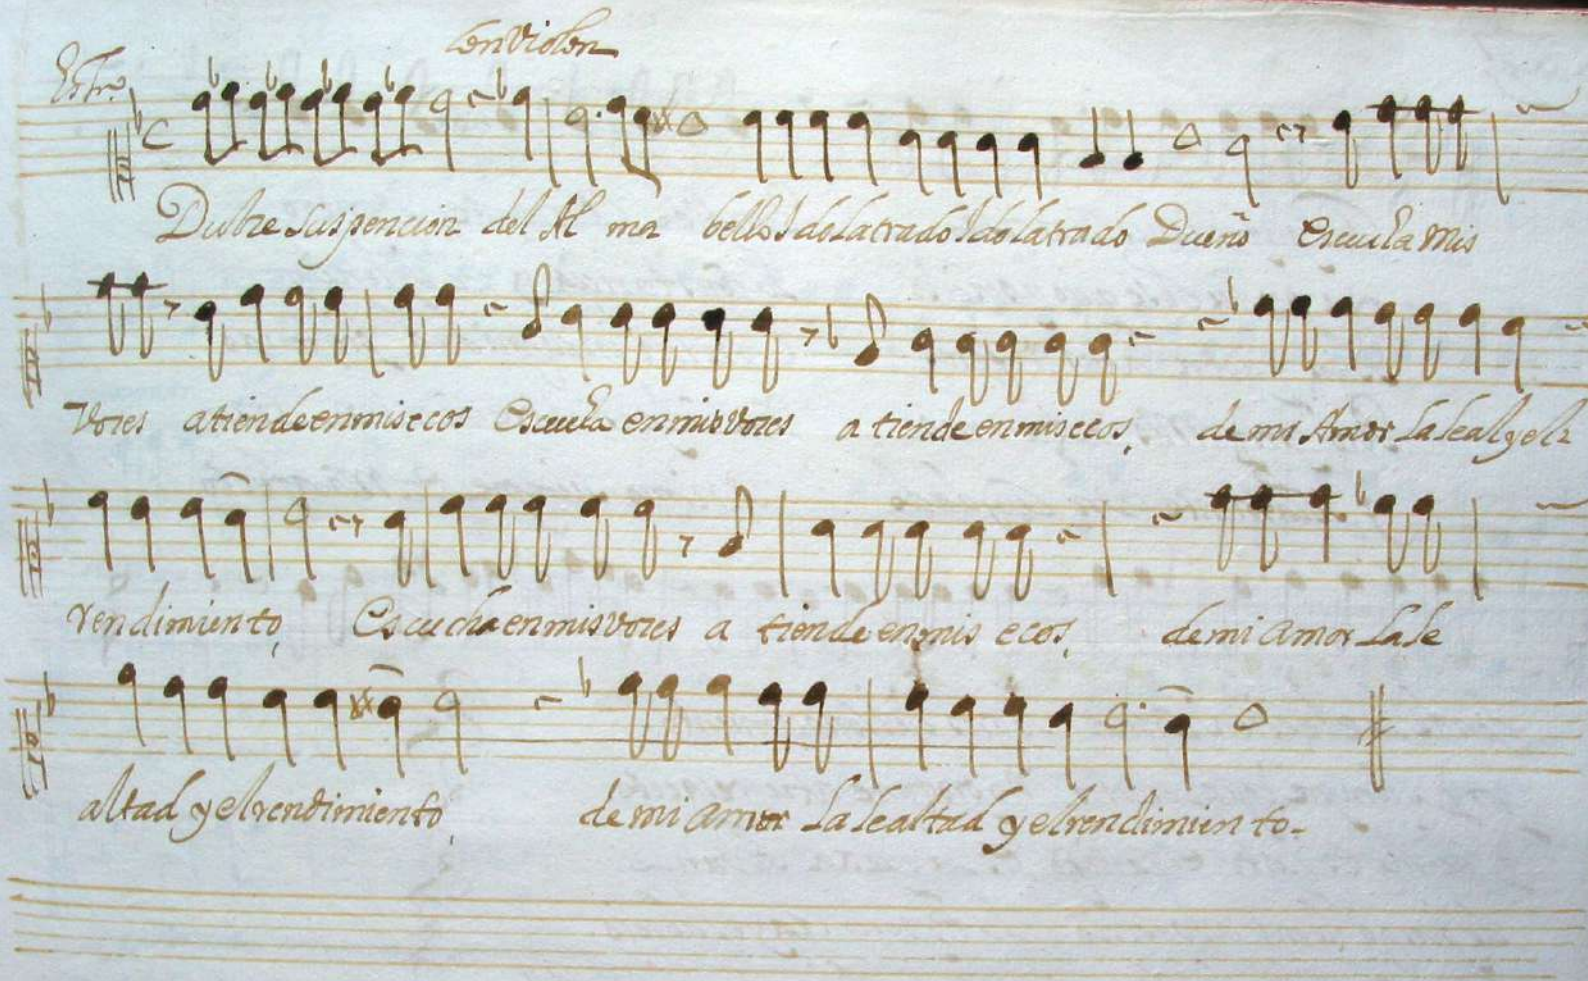 Con Violon
Estr.º
Dulze suspencion del Al ma bello Idolatrado Idolatrado Dueño escucha mis
vozes atiende en mis ecos Escucha en mis vozes a tiende en mis ecos, de mi Amor la leal y el
rendimiento, Escucha en mis vozes a tiende en mis ecos, de mi amor la le
altad y el rendimiento, de mi amor la lealtad y el rendimien to-